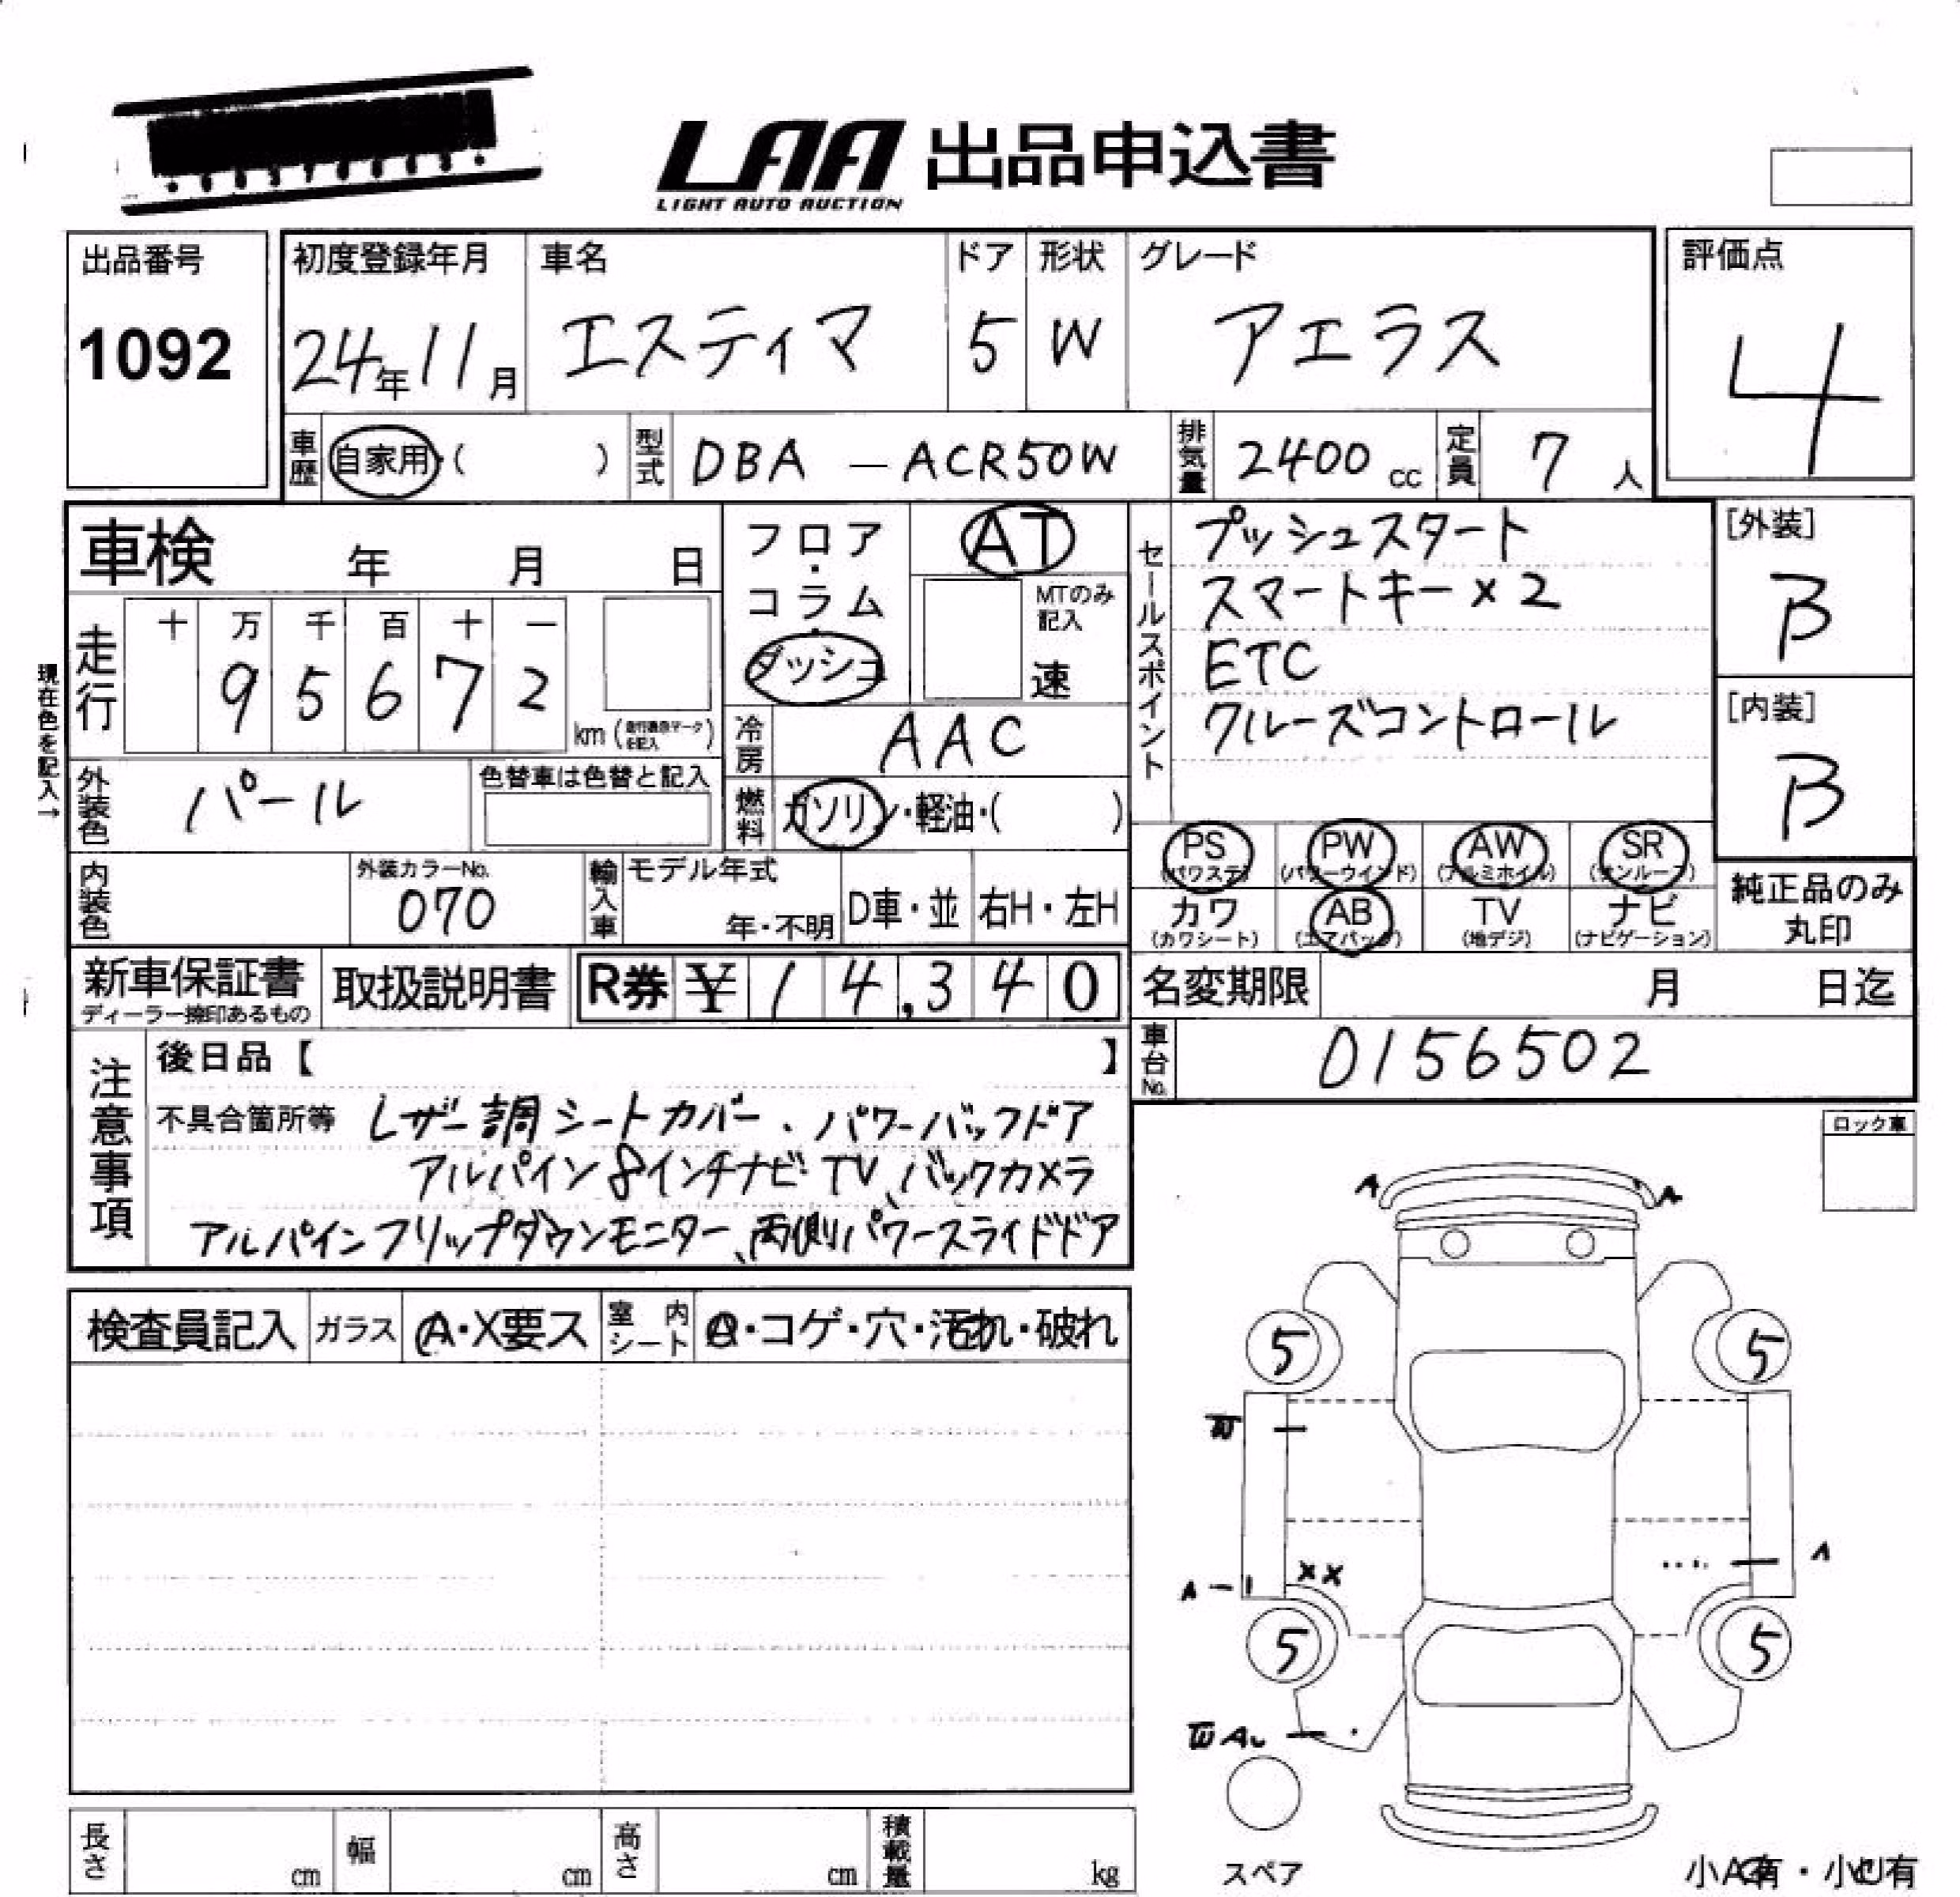 LAA 出品申込書
LIGHT AUTO AUCTION
出品番号
1092
初度登録年月
24年11月
車名
エスティマ
ドア
5
形状
W
グレード
アエラス
評価点
4
車歴 自家用・( )
型式 DBA - ACR50W
排気量 2400 cc
定員 7 人
車検 年 月 日
フロア・コラム・ダッシュ
AT
MTのみ記入
速
セールスポイント
プッシュスタート
スマートキー×2
ETC
クルーズコントロール
[外装]
B
[内装]
B
現在色を記入→
走行
十 万 千 百 十 一
9 5 6 7 2
km
冷房 AAC
外装色 パール
色替車は色替と記入
燃料 ガソリン・軽油・( )
PS (パワステ) PW (パワーウインド) AW (アルミホイル) SR (サンルーフ)
カワ (カワシート) AB (エアバッグ) TV (地デジ) ナビ (ナビゲーション)
純正品のみ丸印
内装色
外装カラーNo.
070
輸入車
モデル年式
年・不明
D車・並
右H・左H
新車保証書
ディーラー捺印あるもの
取扱説明書
R券 ¥14,340
名変期限 月 日迄
車台No. 0156502
注意事項
後日品【 】
不具合箇所等 レザー調シートカバー、パワーバックドア
アルパイン8インチナビTV、バックカメラ
アルパインフリップダウンモニター、両側パワースライドドア
ロック車
検査員記入
ガラス A・X要ス
室内シート ・コゲ・穴・汚れ・破れ
A A
5 5
W
A
A XX
5 5
W A
スペア
長さ cm
幅 cm
高さ cm
積載量 kg
小A有・小U有